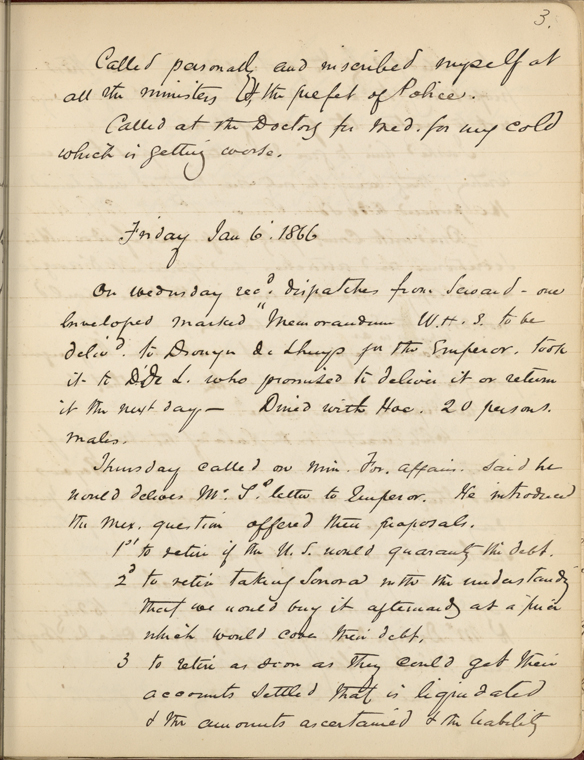 3.
Called personally and inscribed myself at
all the ministers & the prefet of Police.
Called at the Doctors for Med. for my cold
which is getting worse.
Friday Jan 6. 1866
On wedusday recd. dispatches from Seward - one
Enveloped marked "Memorandum W.H.S. to be
delivd. to Drouyn de Lhuys for the Emperor. took
it to D. de L. who promised to deliver it or return
it the next day - Dined with Hoe. 20 persons.
males.
Thursday called on Min. For. affairs. Said he
would deliver Mr. S.s letter to Emperor. He introduced
the Mex. question offered three proposals.
1st to retire if the U.S. would guaranty the debt.
2d to retire taking Sonora with the understandg
that we would buy it afterwards at a price
which would cover their debt.
3 to retire as soon as they could get their
accounts settled that is liquidated
& the amounts ascertained & the liability